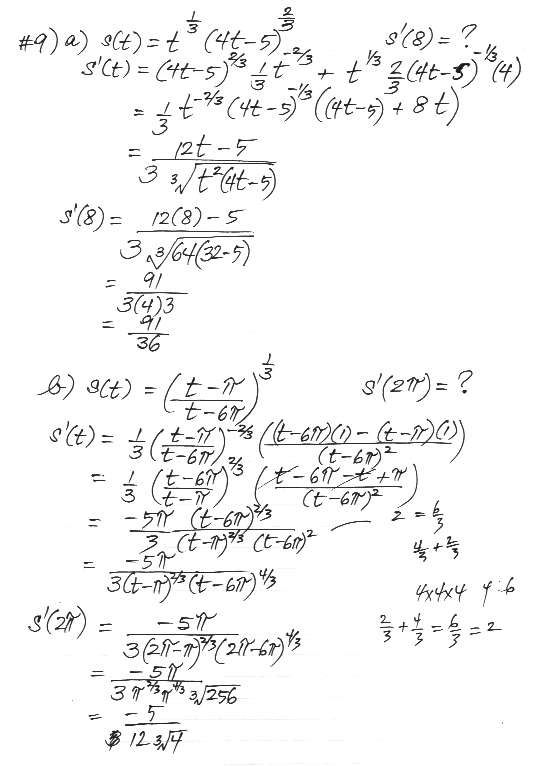 #9) a) s(t) = t^(1/3) (4t-5)^(2/3)   s'(8) = ?
s'(t) = (4t-5)^(2/3) 1/3 t^(-2/3) + t^(1/3) 2/3 (4t-5)^(-1/3) (4)
= 1/3 t^(-2/3) (4t-5)^(-1/3) ((4t-5) + 8t)
= (12t-5) / (3 ∛(t²(4t-5)))
s'(8) = (12(8)-5) / (3 ∛(64(32-5)))
= 91 / (3(4)3)
= 91/36
b) s(t) = ((t-π)/(t-6π))^(1/3)   s'(2π) = ?
s'(t) = 1/3 ((t-π)/(t-6π))^(-2/3) (((t-6π)(1) - (t-π)(1))/(t-6π)²)
= 1/3 ((t-6π)/(t-π))^(2/3) ((t-6π-t+π)/(t-6π)²)
= -5π/3 (t-6π)^(2/3) / ((t-π)^(2/3) (t-6π)²)   2 = 6/3
4/3 + 2/3
= -5π / (3(t-π)^(2/3) (t-6π)^(4/3))
4x4x4
s'(2π) = -5π / (3(2π-π)^(2/3) (2π-6π)^(4/3))   2/3 + 4/3 = 6/3 = 2
= -5π / (3 π^(2/3) π^(4/3) ∛256)
= -5 / (12 ∛4)